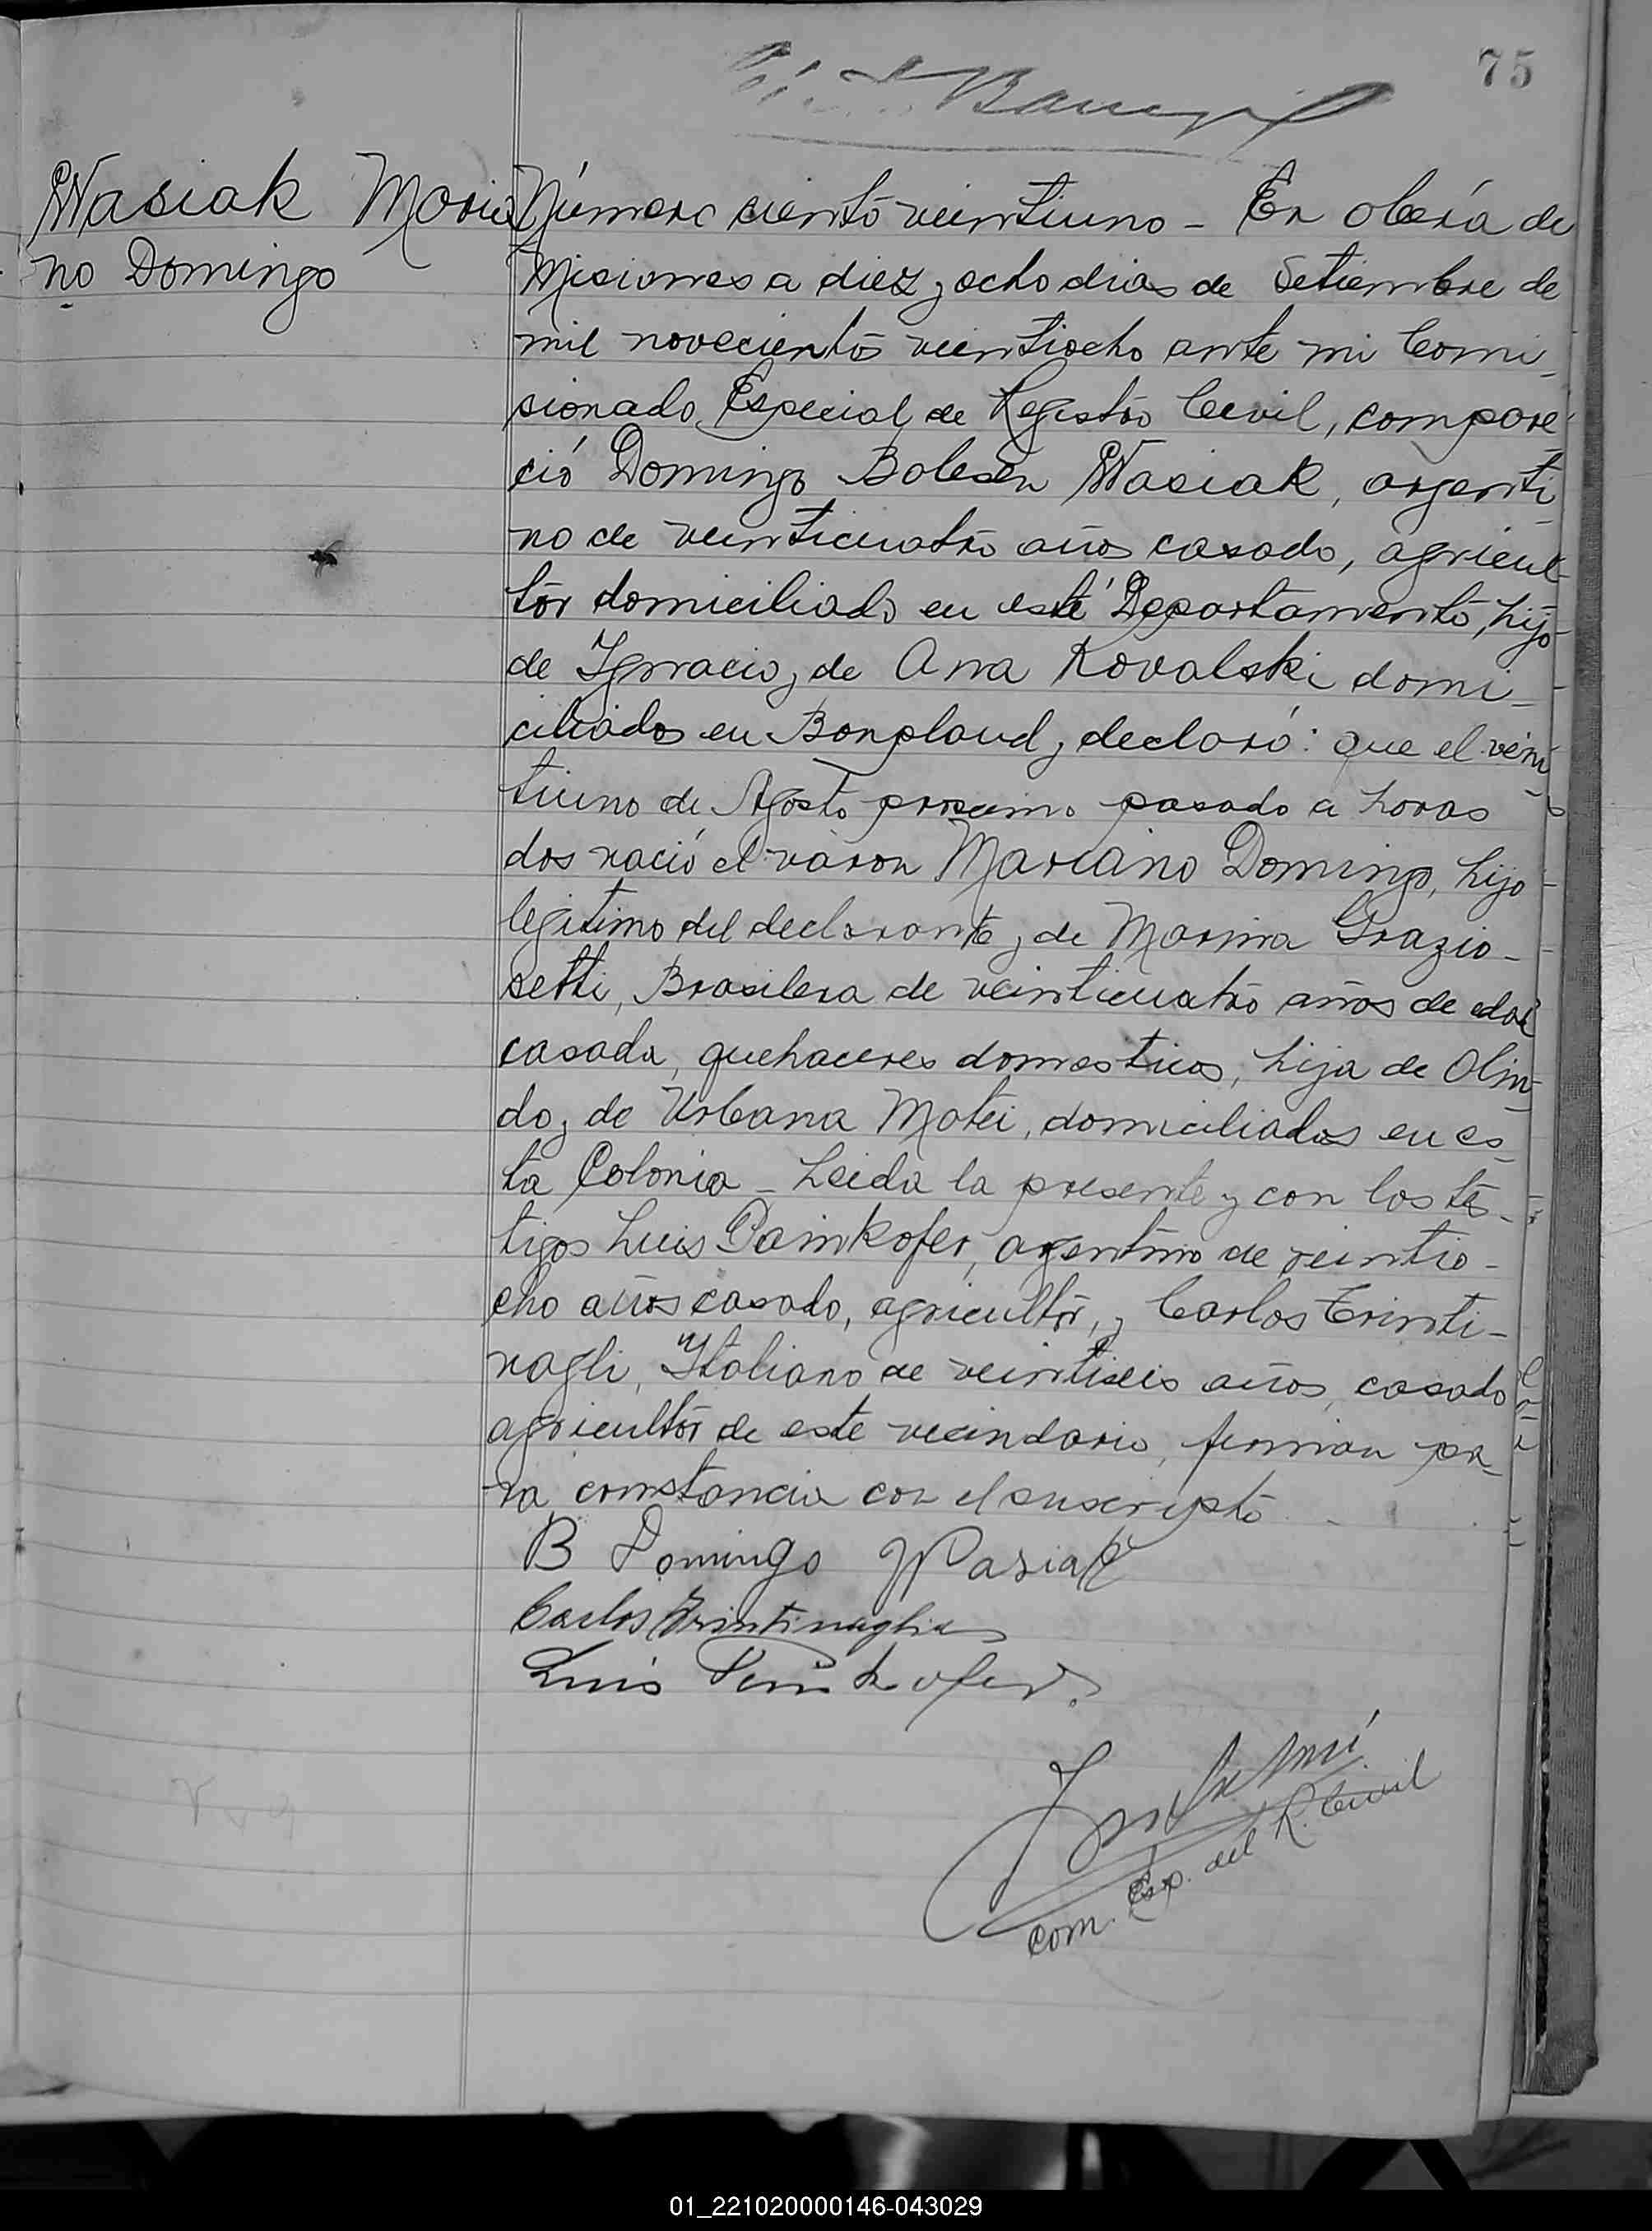 75
Wasiak Maria
no Domingo
Número ciento veintiuno - En oberá de
Misiones a diez y ocho dias de Setiembre de
mil novecientos veintiocho ante mi Comi-
sionado Especial de Registro Civil, compare-
ció Domingo Bolesen Wasiak, argenti-
no de veinticuatro años casado, agricul-
tor domiciliado en este Departamento, hijo
de Ignacio y de Ana Kovalski domi-
ciliados en Bonpland y declaró: que el vein-
tiuno de Agosto proximo pasado a horas
dos nació el varon Mariano Domingo, hijo
legitimo del declarante y de Marina Grazio-
setti, Brasilera de veinticuatro años de edad
casada, quehaceres domesticos, hija de Olin-
do y de Urbana Motei, domiciliados en es-
ta Colonia - Leida la presente y con los tes-
tigos Luis Painkofer, argentino de veintio-
cho años casado, agricultor, y Carlos Trinti-
nagli, Italiano de veintiseis años, casado
agricultor de este vecindario, firman pa-
ra constancia con el suscripto
B Domingo Wasiak
Carlos Trintinaglia
Luis Painkofer.
Com. Esp. del R. Civil
01_221020000146-043029